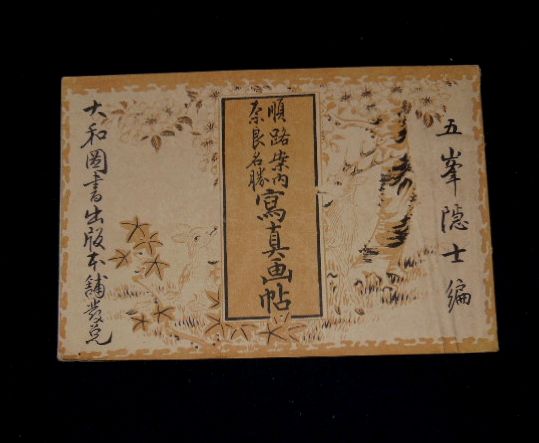 五峯隠士編
順路案内
奈良名勝
寫真画帖
大和圖書出版本舗發兌